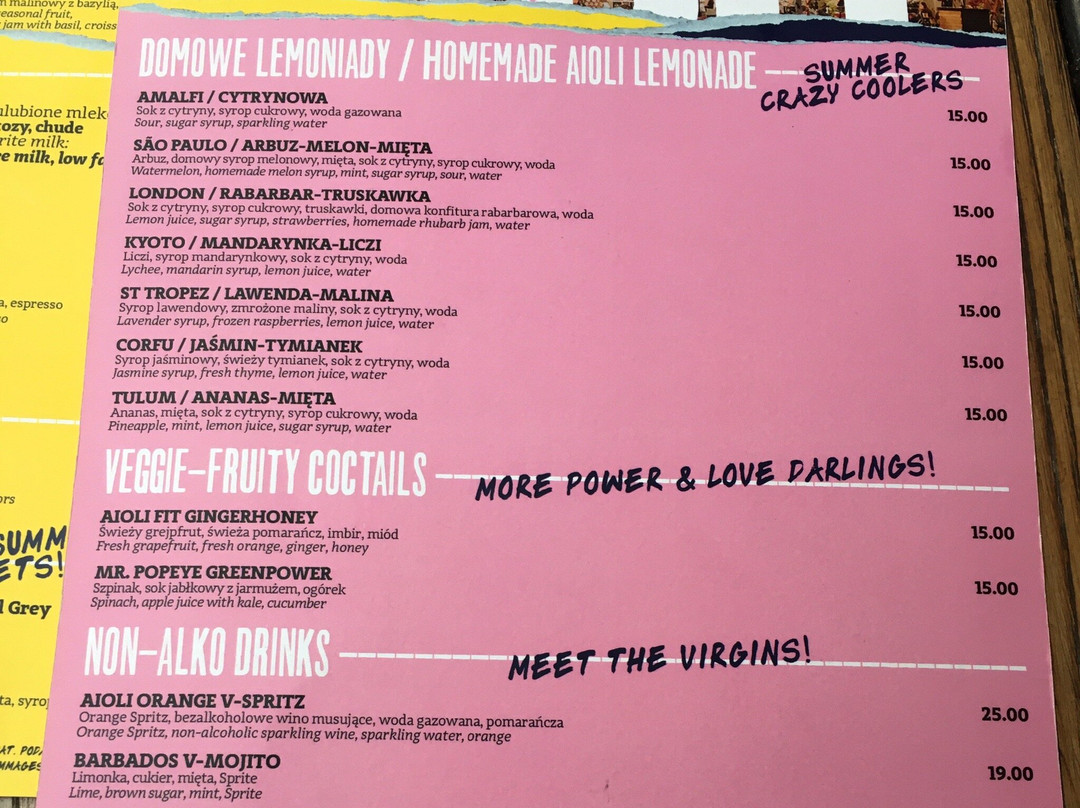 malinowy z bazylią,
easonal fruit,
jam with basil, croiss
ulubione mlek
ozy, chude
rite milk:
e milk, low fa
a, espresso
so
ors
SUMM
ETS!
l Grey
ta, syrop
AT. POD
MMAGES
DOMOWE LEMONIADY / HOMEMADE AIOLI LEMONADE
SUMMER
CRAZY COOLERS
AMALFI / CYTRYNOWA 15.00
Sok z cytryny, syrop cukrowy, woda gazowana
Sour, sugar syrup, sparkling water
SÃO PAULO / ARBUZ-MELON-MIĘTA 15.00
Arbuz, domowy syrop melonowy, mięta, sok z cytryny, syrop cukrowy, woda
Watermelon, homemade melon syrup, mint, sugar syrup, sour, water
LONDON / RABARBAR-TRUSKAWKA 15.00
Sok z cytryny, syrop cukrowy, truskawki, domowa konfitura rabarbarowa, woda
Lemon juice, sugar syrup, strawberries, homemade rhubarb jam, water
KYOTO / MANDARYNKA-LICZI 15.00
Liczi, syrop mandarynkowy, sok z cytryny, woda
Lychee, mandarin syrup, lemon juice, water
ST TROPEZ / LAWENDA-MALINA 15.00
Syrop lawendowy, zmrożone maliny, sok z cytryny, woda
Lavender syrup, frozen raspberries, lemon juice, water
CORFU / JAŚMIN-TYMIANEK 15.00
Syrop jaśminowy, świeży tymianek, sok z cytryny, woda
Jasmine syrup, fresh thyme, lemon juice, water
TULUM / ANANAS-MIĘTA 15.00
Ananas, mięta, sok z cytryny, syrop cukrowy, woda
Pineapple, mint, lemon juice, sugar syrup, water
VEGGIE-FRUITY COCTAILS MORE POWER & LOVE DARLINGS!
AIOLI FIT GINGERHONEY 15.00
Świeży grejpfrut, świeża pomarańcz, imbir, miód
Fresh grapefruit, fresh orange, ginger, honey
MR. POPEYE GREENPOWER 15.00
Szpinak, sok jabłkowy z jarmużem, ogórek
Spinach, apple juice with kale, cucumber
NON-ALKO DRINKS MEET THE VIRGINS!
AIOLI ORANGE V-SPRITZ 25.00
Orange Spritz, bezalkoholowe wino musujące, woda gazowana, pomarańcza
Orange Spritz, non-alcoholic sparkling wine, sparkling water, orange
BARBADOS V-MOJITO 19.00
Limonka, cukier, mięta, Sprite
Lime, brown sugar, mint, Sprite